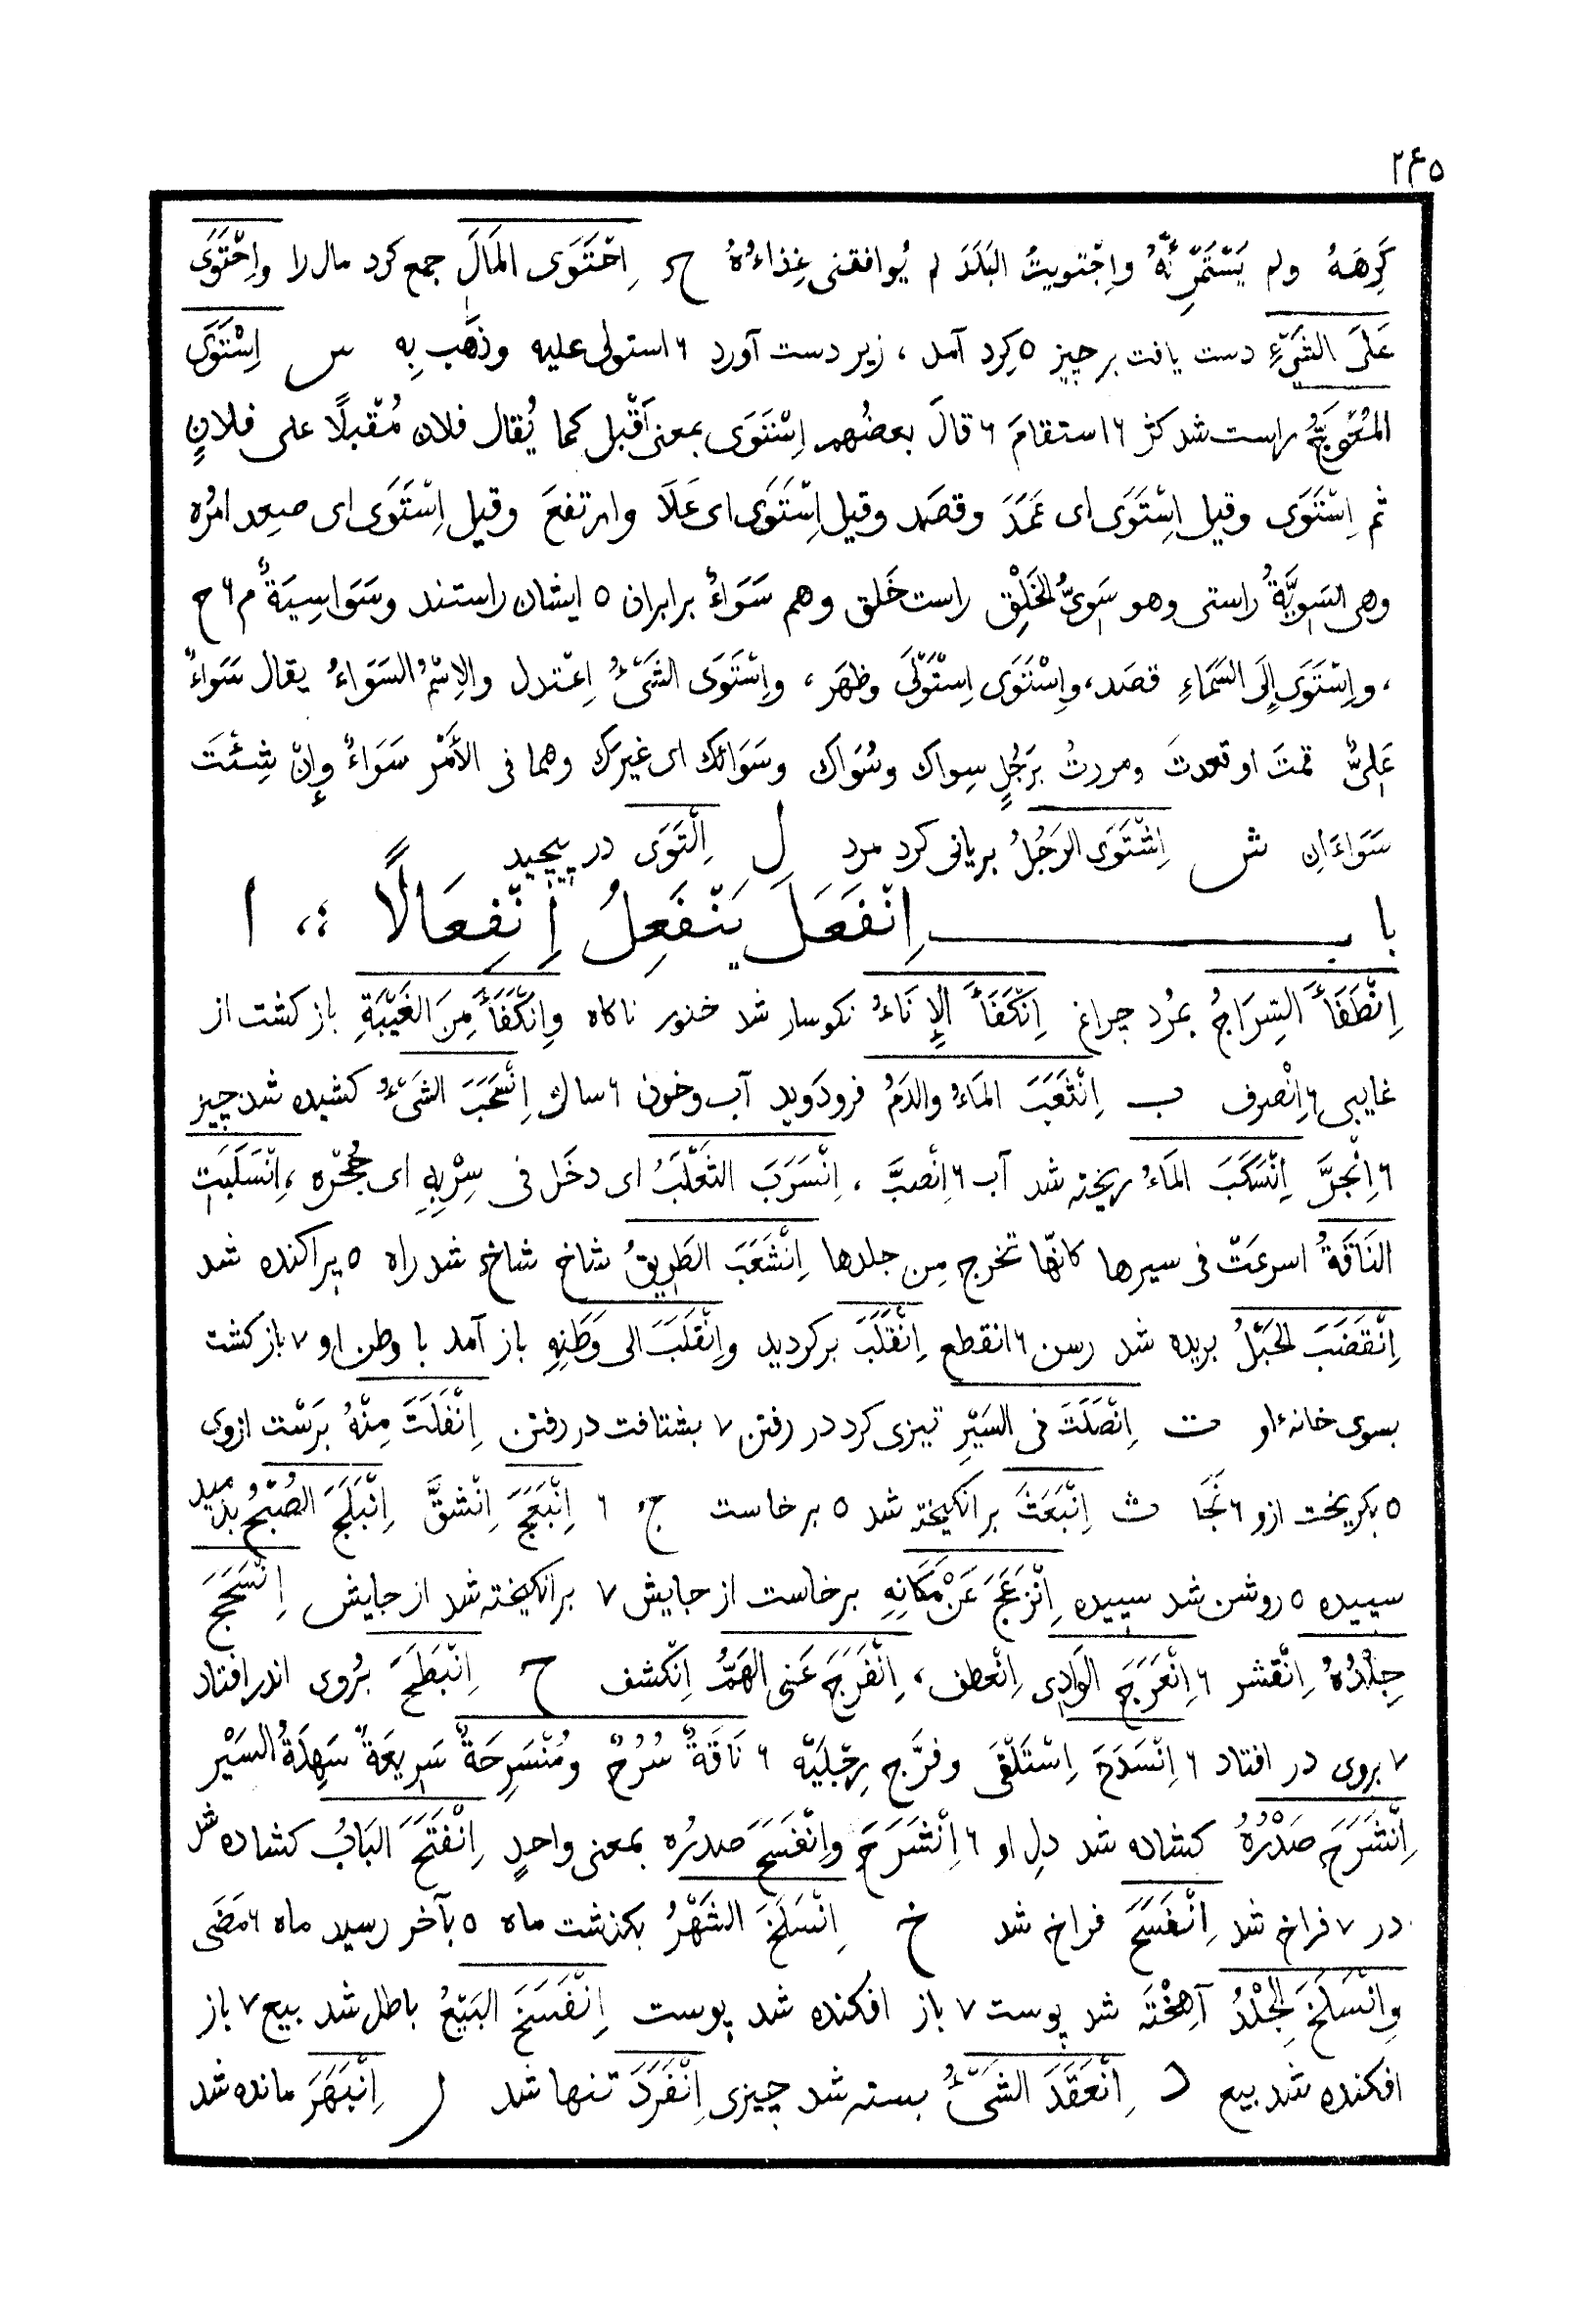 ۲۴۵
كَرِهَهُ ولم يَسْتَمْرِئْهُ واِجْتويتُ البَلَدَ لم يُوافقنى غِذاءُهُ ح اِحْتَوَى المَالَ جمع كرد مال را واِحْتَوَى
عَلَى الشَّىْءِ دست يافت بر چيز ٥ كِرد آمد ، زير دست آورد ۶ استولى عليه وذَهَب بِه س اِسْتَوَى
المُعْوَجُّ راست شد كژ ۶ استقامَ ۶ قالَ بعضُهم اِسْتَوَى بمعنى اَقْبل كما يُقال فلان مُقْبلًا على فلانٍ
ثم اِسْتَوَى وقيل اِسْتَوَى اى عَمَدَ وقصَد وقيل اِسْتَوَى اى عَلَا وارتفعَ وقيل اِسْتَوَى اى صعِد امرُه
وهى السَوِيَّةُ راستى وهو سَوِىُّ الخَلْقِ راست خَلق وهم سَوَاءٌ برابران ٥ ايشان راستند وسَوَاسِيَةٌ م ۶ ح
، واِسْتَوَى إِلَى السَّمَاءِ قصَد، واِسْتَوَى اِسْتَوْلَى وظهَر ، واِسْتَوَى الشَىْءُ اِعْتدل والاِسْمُ السَوَاءُ يقال سَوَاءٌ
عَلَىَّ قمتَ او قعدتَ ومررتُ بَرَجُلٍ سِواك وسُوَاك وسَوَائك اى غيرك وهما فى الأَمْرِ سَوَاءٌ وإنْ شِئْتَ
سَوَاءَانِ ش اِشْتَوَى الرَجُلُ بريانى كرد مرد ل اِلْتَوَى در پيچيد
بابـ اِنْفَعَلَ يَنْفَعِلُ اِنْفِعَالًا ؛، ا
اِنْطَفَأَ السِّرَاجُ بمُرد چراغ اِنْكَفَأَ الإِنَاءُ نكوسار شد خنور ناكاه واِنْكَفَأَ مِنَ الغَيْبَةِ باز كشت از
غايبى ۶ اِنْصرف ب اِنْثَعَبَ المَاءُ والدَمُ فرودَويد آب وخون ۶ سال اِنْسَحَبَ الشَىْءُ كشيده شد چيز
۶ اِنْجرَّ اِنْسَكَبَ المَاءُ ريخته شد آب ۶ اِنْصبَّ ، اِنْسَرَبَ الثَعْلَبُ اى دخَل فى سِرْبِهِ اى جُحْرِه ، اِنْسَلَبَتِ
النَاقَةُ اسرعَتْ فى سيرها كانّها تخرج مِن جلدها اِنْشَعَبَ الطَرِيقُ شاخ شاخ شد راه ٥ پراكنده شد
اِنْقَضَبَ الحَبْلُ بريده شد رسن ۶ انقطع اِنْقَلَبَ بركرديد واِنْقَلَبَ الى وَطَنِهِ باز آمد با وطن او ٧ باز كشت
بسوى خانه‌ء او ت اِنْصَلَتَ فى السَيْرِ تيزى كرد در رفتن ٧ بشتافت در رفتن اِنْفَلَتَ مِنْهُ بَرَسْت ازوى
٥ بكريخت ازو ۶ نَجَا ث اِنْبَعَثَ برانكيخته شد ٥ برخاست ج ۶ اِنْبَعَجَ اِنْشقَّ اِنْبَلَجَ الصُبْحُ بدميد
سپيده ٥ روشن شد سپيده اِنْزَعَجَ عَنْ مَكَانِهِ برخاست از جايش ٧ برانكيخته شد از جايش اِنْسَحَجَ
جِلْدُهُ اِنْقشر ۶ اِنْعَرَجَ الوَادِى اِنْعطف ، اِنْفَرَجَ عَنىِ الهَمُّ اِنْكشف ح اِنْبَطَحَ بُروى اندر افتاد
٧ بروى در افتاد ۶ اِنْسَدَحَ اِسْتَلْقَى وفرَّج رِجْلَيْه ۶ نَاقَةٌ سُرُحٌ ومُنْسَرِحَةٌ سَرِيعَةٌ سَهِلَةُ السَيْرِ
اِنْشَرَحَ صَدْرُهُ كشاده شد دل او ۶ اِنْشَرَحَ واِنْفَسَحَ صدرُه بمعنى واحدٍ اِنْفَتَحَ البَابُ كشاده شد
در ٧ فراخ شد اِنْفَسَحَ فراخ شد خ اِنْسَلَخَ الشَهْرُ بكذشت ماه ٥ بآخر رسيد ماه ۶ مَضَى
واِنْسَلَخَ الجِلْدُ آهِخْتَه شد پوست ٧ باز افكنده شد پوست اِنْفَسَخَ البَيْعُ باطل شد بيع ٧ باز
افكنده شد بيع د اِنْعَقَدَ الشَىْءُ بسته شد چيزى اِنْفَرَدَ تنها شد ر اِنْبَهَرَ مانده شد